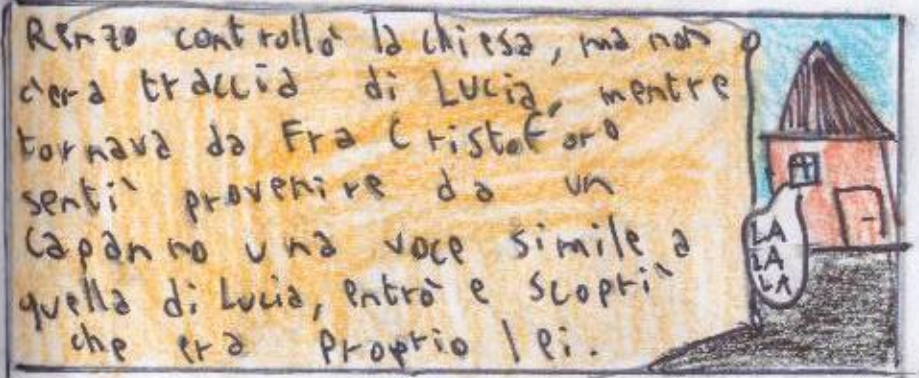 Renzo controllò la chiesa, ma non
c'era traccia di Lucia, mentre
tornava da Fra Cristoforo
sentì provenire da un
capanno una voce simile a
quella di Lucia, entrò e scoprì
che era proprio lei.
LA
LA
LA